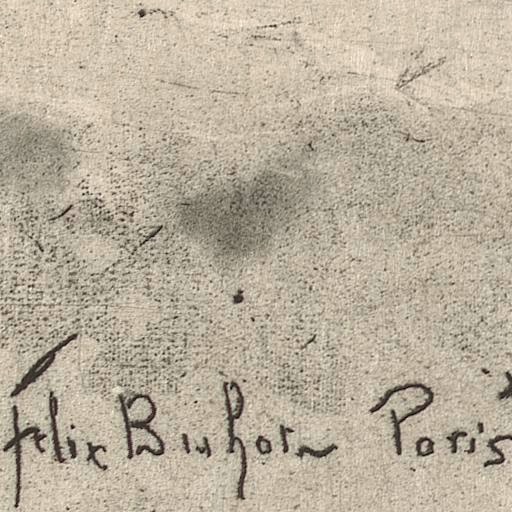 Felix Buhot Paris